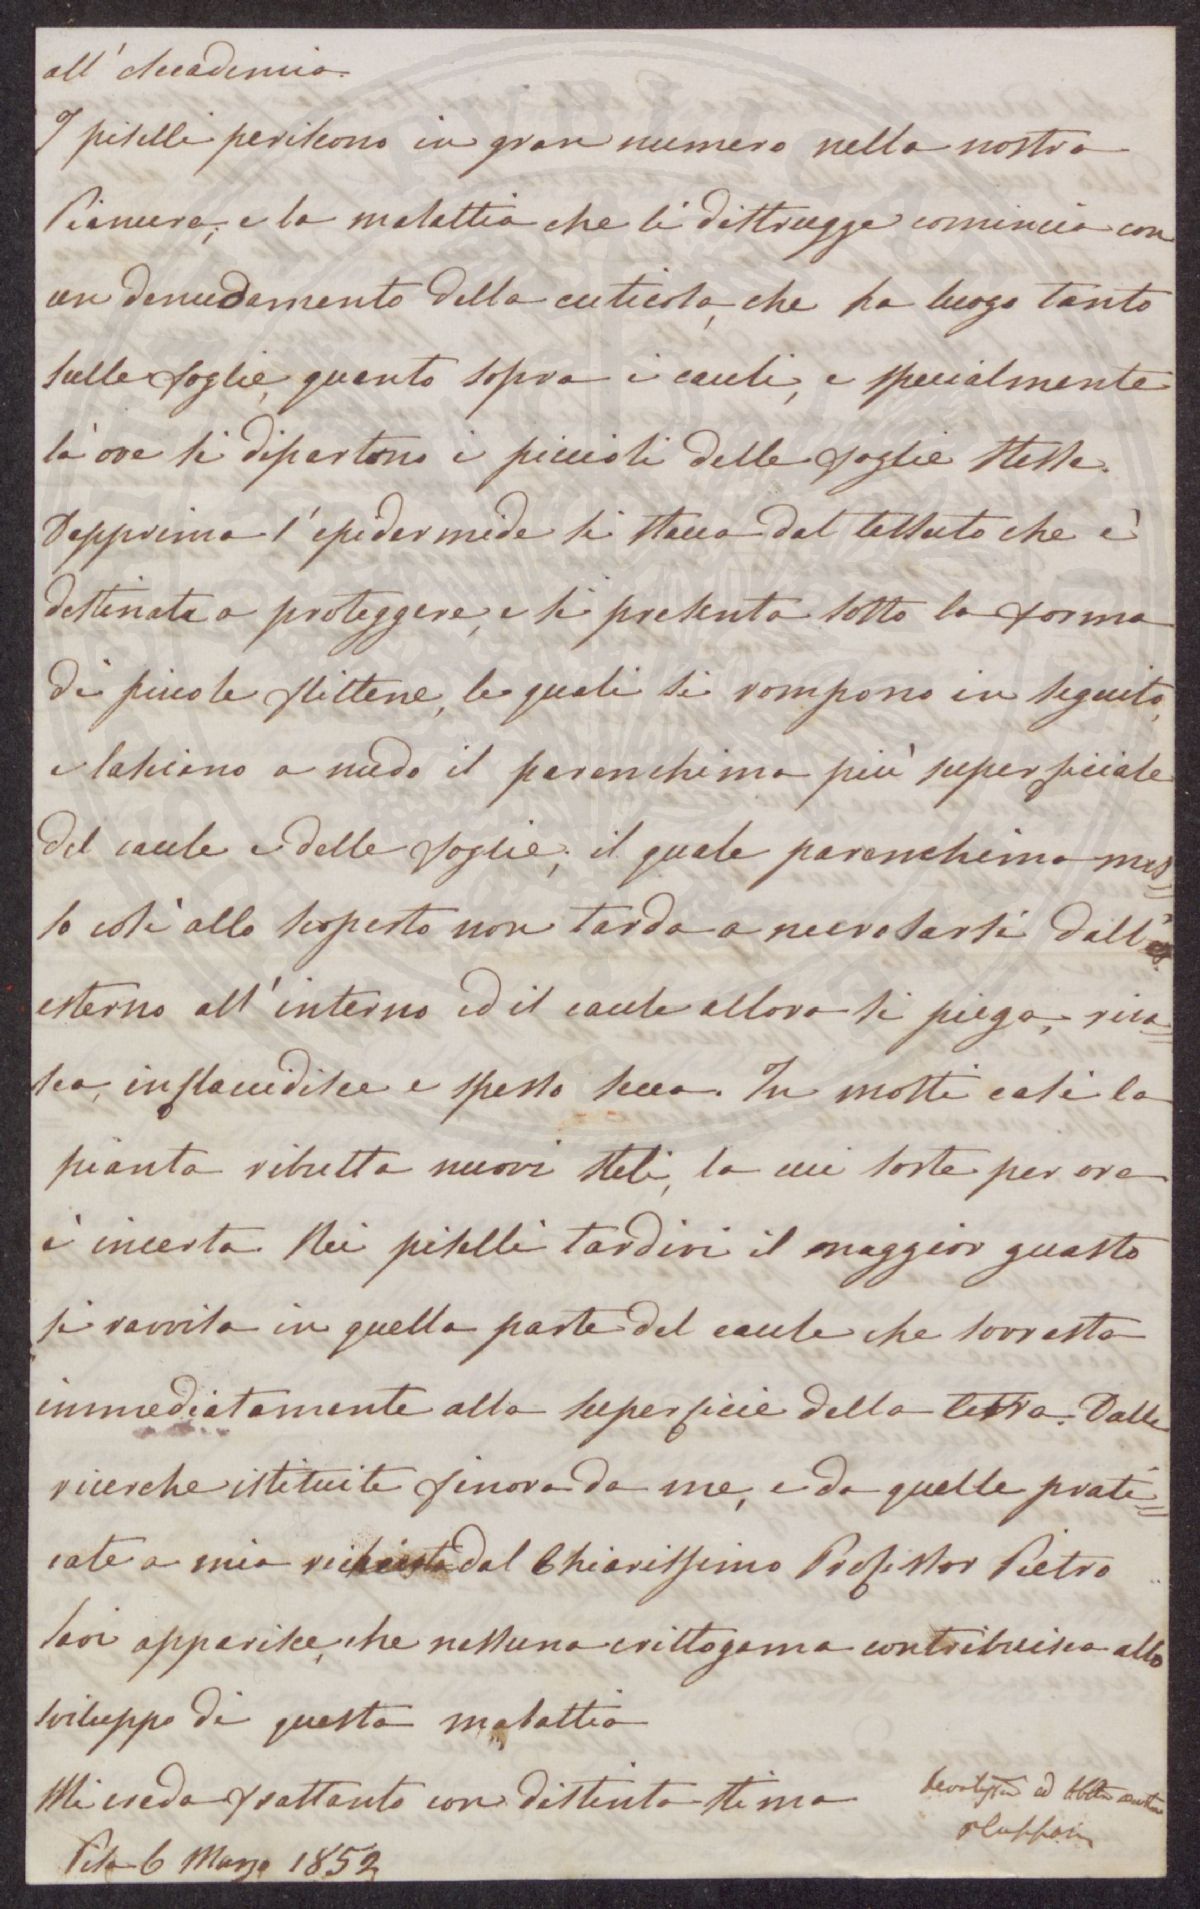 all'Accademia.
I piselli periscono in gran numero nella nostra
Pianura, e la malattia che li distrugge comincia con
un denudamento della cuticola, che ha luogo tanto
sulle foglie, quanto sopra i cauli, e specialmente
là ove si dipartono i piccioli delle foglie stesse.
Dapprima l'epidermide si stacca dal tessuto che è
destinata a proteggere, e si presenta sotto la forma
di piccole flittene, le quali si rompono in seguito,
e lasciano a nudo il parenchima più superficiale
del caule e delle foglie; il quale parenchima mes=
so così allo scoperto non tarda a necrosarsi dall'
esterno all'interno ed il caule allora si piega, rica=
sca, inflaccidisce e spesso secca. In molti casi la
pianta ributta nuovi steli, la cui sorte per ora
è incerta. Nei piselli tardivi il maggior guasto
si ravvisa in quella parte del caule che sovrasta
immediatamente alla superficie della terra. Dalle
ricerche istituite finora da me, e da quelle prati=
cate a mia richiesta dal Chiarissimo Professor Pietro
Savi apparisce, che nessuna crittogama contribuisca allo
sviluppo di questa malattia
Mi creda frattanto con distinta stima
ed
Pisa 6 Marzo 1852